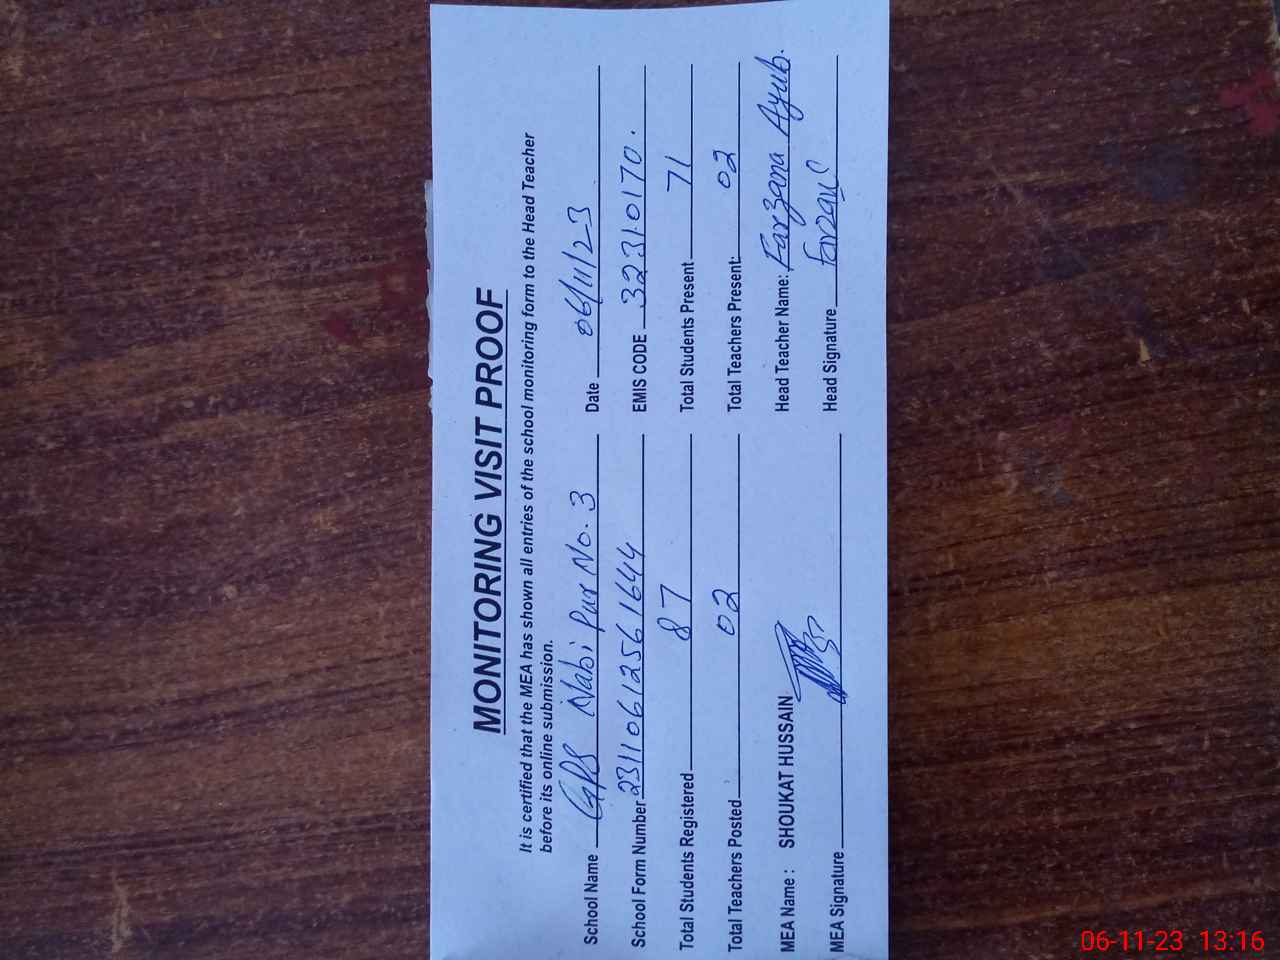 MONITORING VISIT PROOF
It is certified that the MEA has shown all entries of the school monitoring form to the Head Teacher
before its online submission.
School Name GPS Nabi Pur No. 3 Date 06/11/23
School Form Number 23110612561644 EMIS CODE 32310170.
Total Students Registered 87 Total Students Present 71
Total Teachers Posted 02 Total Teachers Present: 02
MEA Name : SHOUKAT HUSSAIN Head Teacher Name: Farzana Ayub.
MEA Signature Head Signature Farzana
06-11-23 13:16